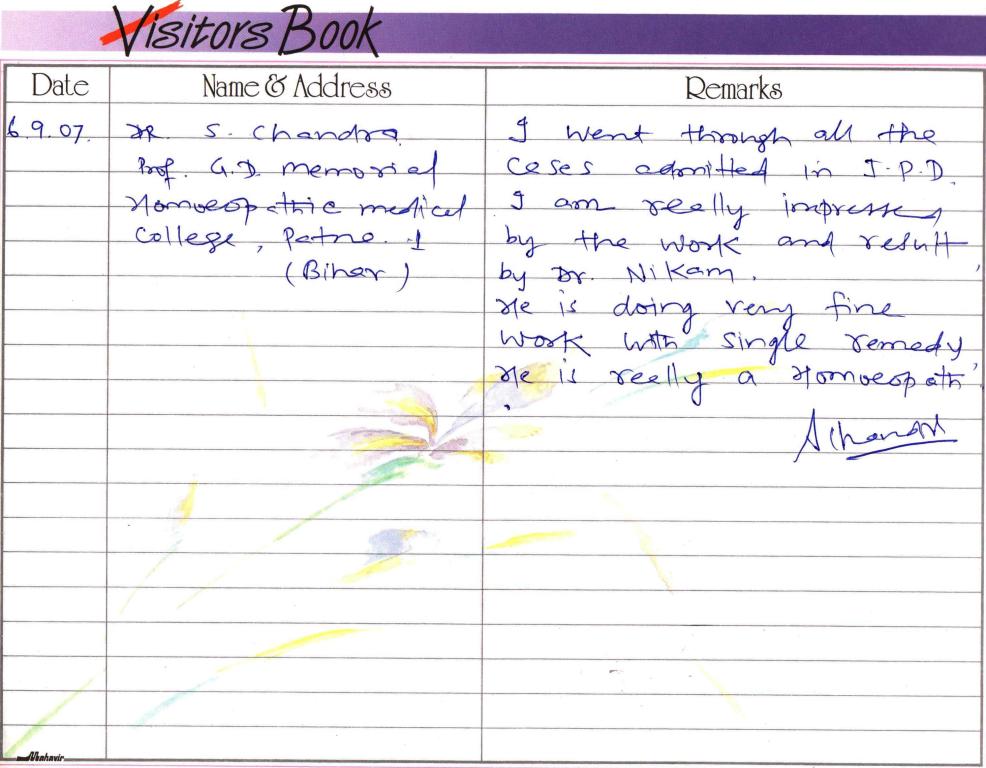 Visitors Book
Date
Name & Address
Remarks
6.9.07.
DR. S. Chandra
Prof. G.D. Memorial
Homoeopathic medical
College, Patna. 1
(Bihar)
I went through all the
cases admitted in I.P.D.
I am really impressed
by the work and result,
by Dr. Nikam.
He is doing very fine
work with single remedy,
He is really a Homoeopath
.
Mahavir